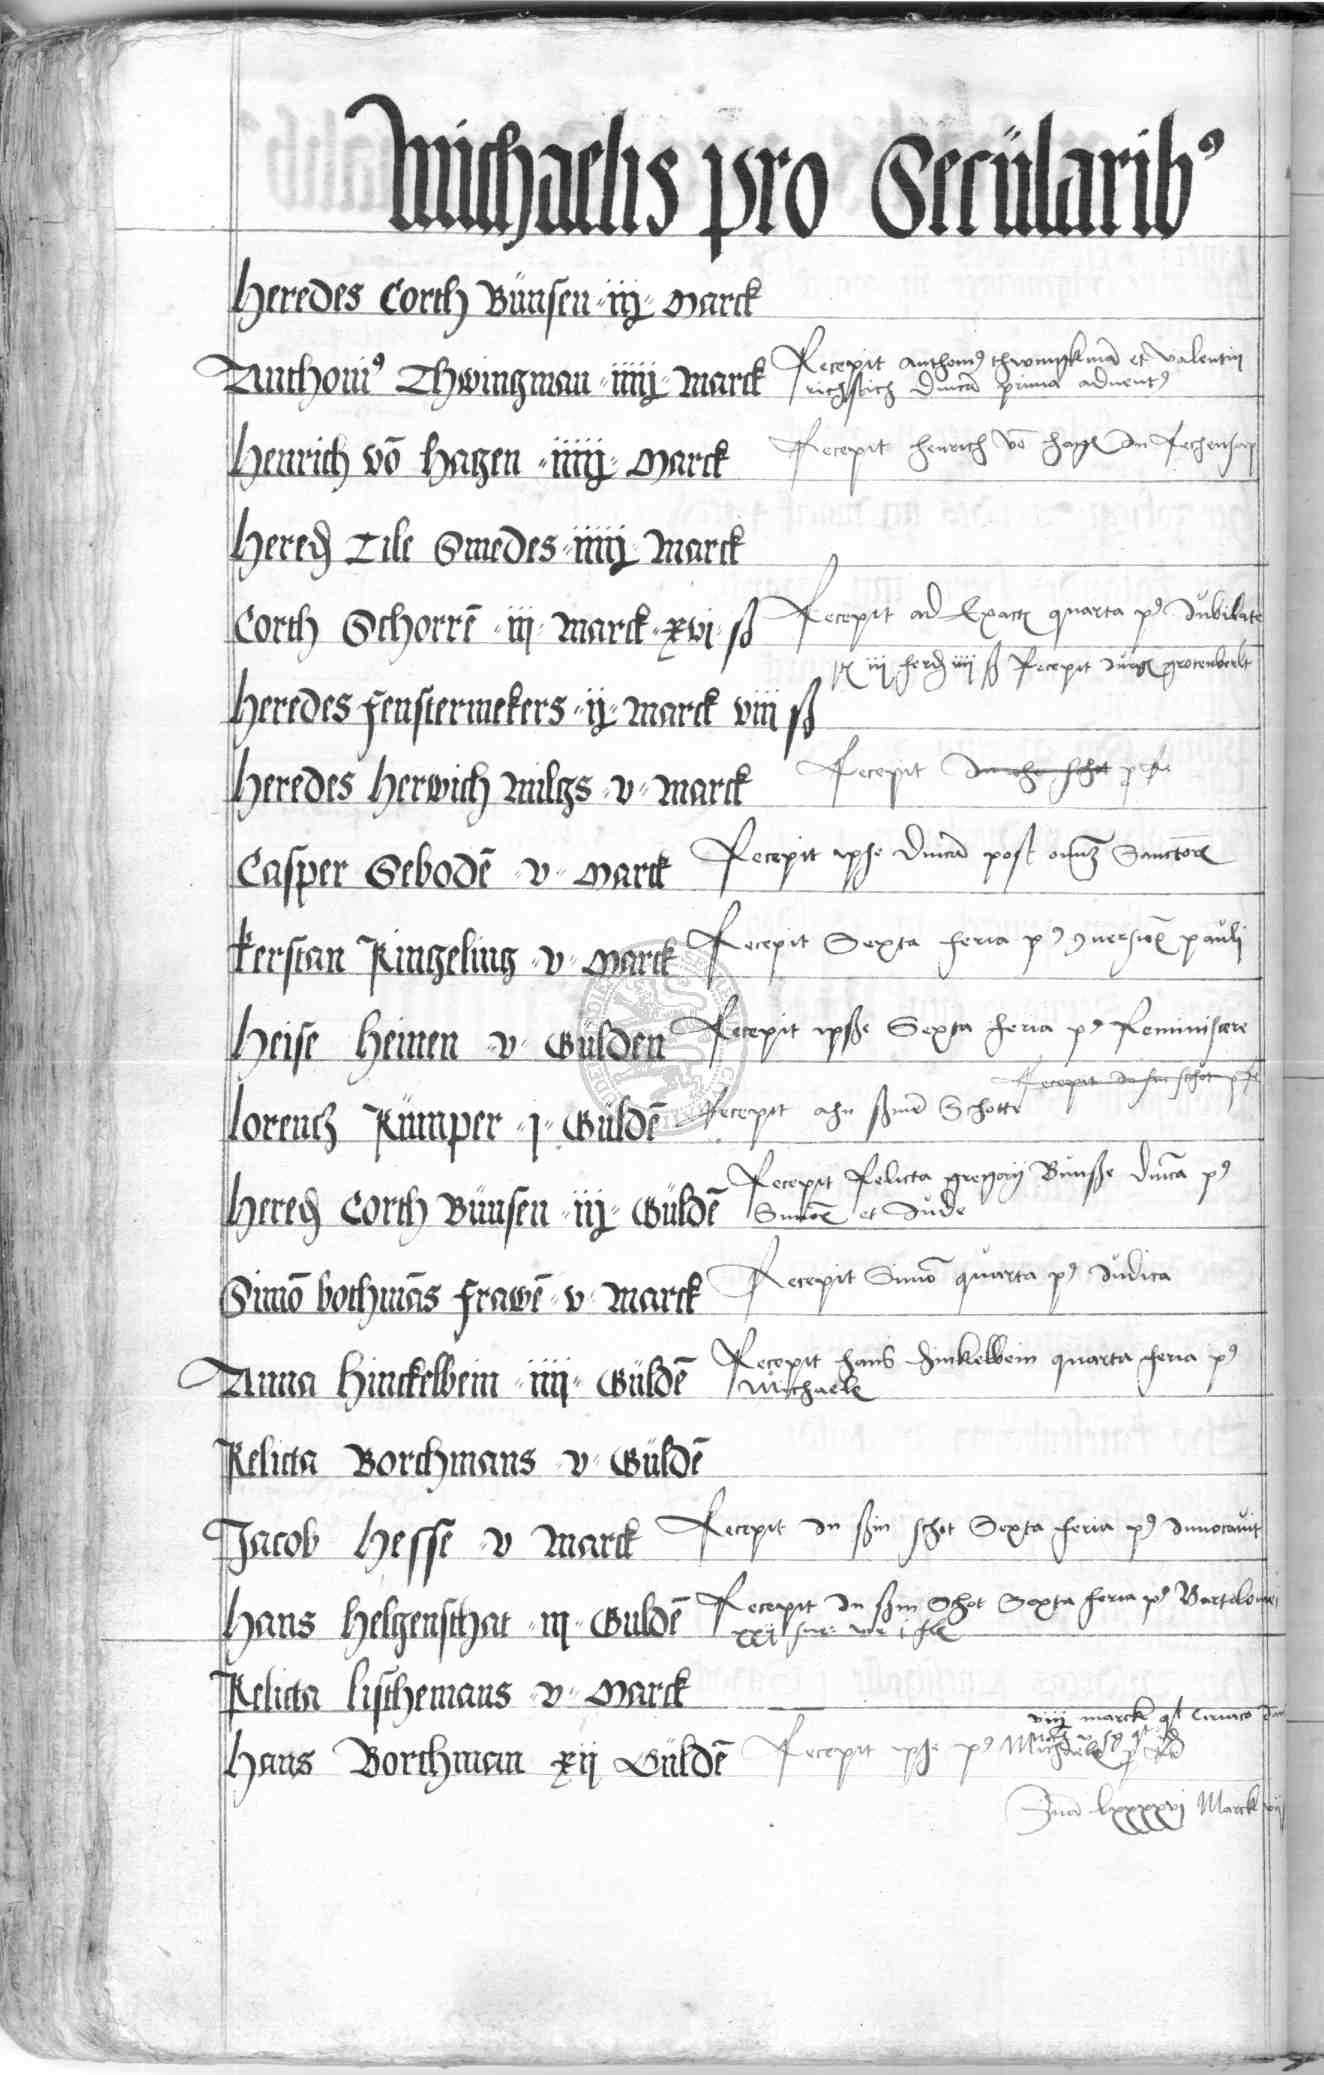 Michaelis pro Secularib9
Heredes Corth Bünsen iij Marck
Anthoni9 Thwingman iiiij Marck Recepit anthoni9 thwingkmā et valentin
richstich dnīca prima advent9
Henrich vō Hagen iiiij Marck Recepit henrich vō hagē
Hered Tile Smedes iiiij Marck
Corth Schorrē iij Marck xvi ß Recepit ad quarta p9 Jubilate
iij ferd iiij ß Recepit
Heredes fenstermekers ij Marck viii ß
Heredes Herwich Milgs v Marck Recepit
Casper Sebodē v Marck Recepit ipse dnīca post Sanctorū
Kerstan Ringeling v Marck Recepit Sexta feria p9 9versiōē pauli
Heise Heinen v Gülden Recepit ipße Sexta feria p9 Reminiscere
Recepit schot
Lorentz Rümper j Güldē Recepit ahn ßinē Schotte
Hered Corth Bünsen iij Güldē Recepit Relicta gregorij Bünße dnīca p9
Simōē et Jude
Simō bothmās frawē v Marck Recepit Simō quarta p9 Judica
Anna Hinckelbein iiij Güldē Recepit hans Hinkelbein quarta feria p9
Michaelē
Relicta Borchmans v Güldē
Jacob Hesse v Marck Recepit In ßin schot Sexta feria p9 Invocavit
Hans Helgenschat iij Guldē Recepit In ßin Schot Sexta feria p9 Bartolomei
xxii
Relicta lischemans v Marck
viij marck
Hans Borchman xij Güldē Recepit ipse p9 Michaelē
Sūma lxxxxvj Marck